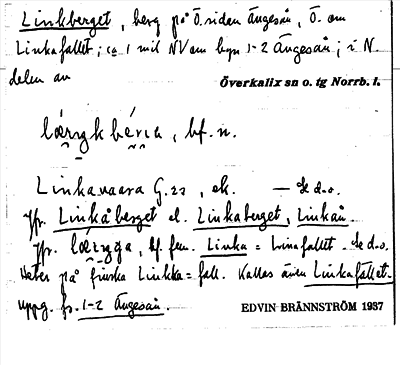 Linkberget, berg på Ö.sidan Ängesån, Ö. om
Linkafallet; ca 1 mil NV om byn 1-2 Ängesån; i N.
delen av
Överkalix sn o. tg Norrb. l.
bf. n.
Linkavaara G.22, ek. — Se d.o.
Jfr. Linkåberget el. Linkaberget, Linkån.
Jfr. bf. fem. Linka = Linafallet. Se d.o.
Heter på finska Linkka = fall. Kallas även Linkafallet.
Uppg. fr. 1-2 Ängesån.
EDVIN BRÄNNSTRÖM 1937